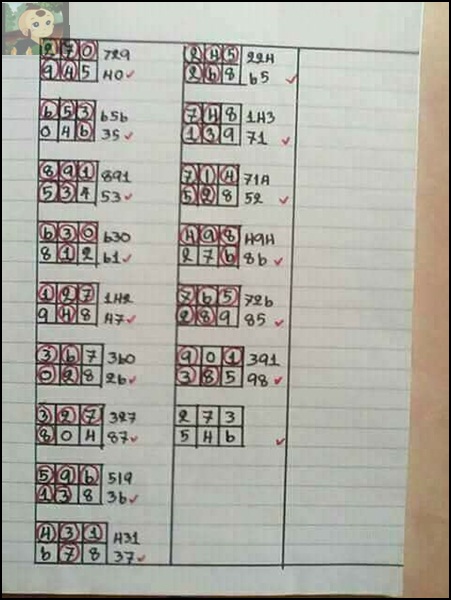 2 7 0 729
9 4 5 40
6 5 3 656
0 4 6 35
8 9 1 891
5 3 4 53
6 3 0 630
8 1 2 61
1 2 7 142
9 4 8 47
3 6 7 360
0 2 8 26
3 2 7 327
8 0 4 87
5 9 6 519
1 3 8 36
4 3 1 431
6 7 8 37
2 4 5 224
2 6 8 65
7 4 8 143
1 3 9 71
7 1 4 714
5 2 8 52
4 9 8 494
2 7 6 86
7 6 5 726
2 8 9 85
9 0 1 391
3 8 5 98
2 7 3
5 4 6